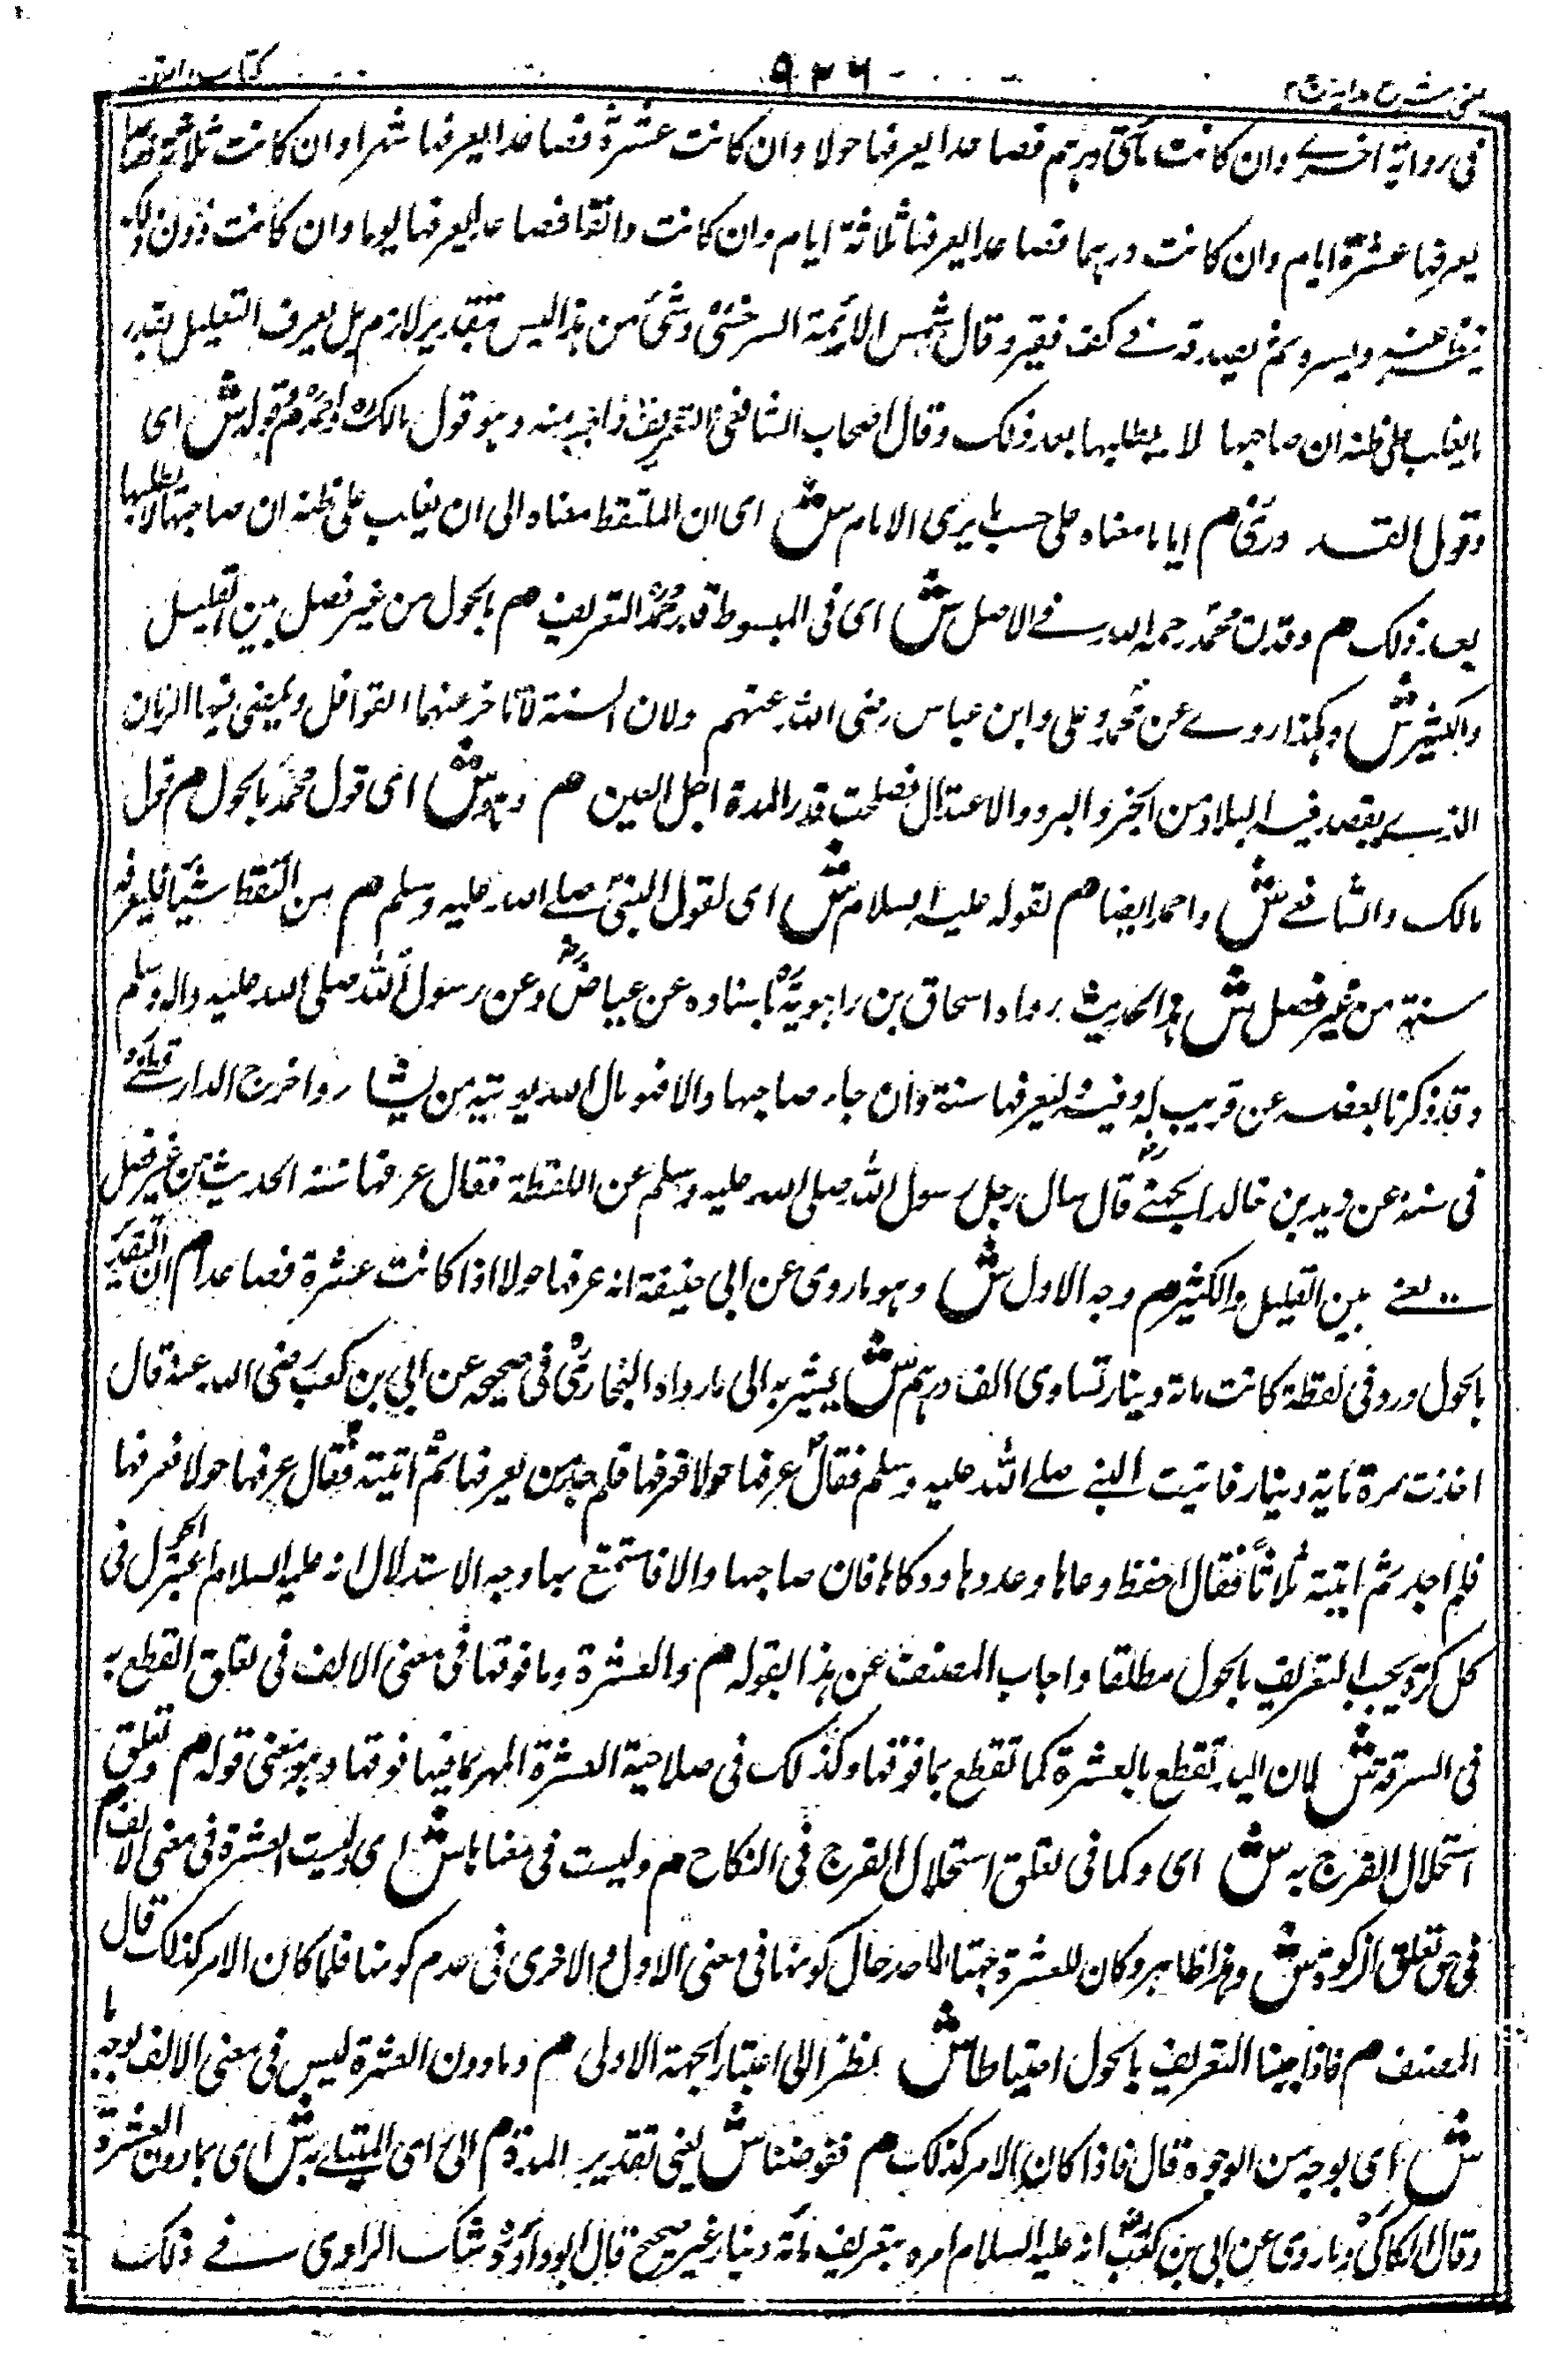 عینی شرح هدایة ج ۲ ۹۳۶ كتاب اللقطة
فی روایة اخری وان كانت مأتی درهم فصاعدا یعرفها حولا وان كانت عشرة فصاعدا یعرفها شهرا وان كانت ثلاثة فصاعدا
یعرفها عشرة ایام وان كانت درهما فصاعدا یعرفها ثلاثة ایام وان كانت دانقا فصاعدا یعرفها یوما وان كانت دون ذلك
ینظر یمنة ویسرة ثم یضعه فی كف فقیر وقال شمس الائمة السرخسی وشئ من هذا لیس بتقدیر لازم بل یعرف القلیل بقدر
ما یغلب علی ظنه ان صاحبها لا یطلبها بعد ذلك وقال اصحاب الشافعی التعریف واجب سنة وهو قول مالك واحمد م قوله ش ای
وقول القدوری م ایاما معناه علی حسب ما یری الامام ش ای ان الملتقط معناه الی ان یغلب علی ظنه ان صاحبها لا یطلبها
بعد ذلك م وقدره محمد رحمه الله فی الاصل ش ای فی المبسوط قدر محمد التعریف م بالحول من غیر فصل بین القلیل
والكثیر ش وهكذا روی عن محمد وعلی وابن عباس رضی الله عنهم ولان السنة لا تتاخر عنها القوافل ویمضی فیها الزمان
الذی یقصد فیه البلاد من الحر والبرد والاعتدال فصلحت قدر المدة اجل العین م وهو ش ای قول محمد بالحول م قول
مالك والشافعی ش واحمد ایضا م لقوله علیه السلام ش ای لقول النبی صلی الله علیه وسلم م من التقط شیأ فلیعرفه
سنة من غیر فصل ش هذا الحدیث رواه اسحاق بن راهویه باسناده عن عیاض وعن رسول الله صلی الله علیه واله وسلم
وقد ذكرنا بعضه عن قریب وفیه لیعرفها سنة وان جاء صاحبها والا فهو مال الله یوتیه من یشا ء واخرج الدارقطنی
فی سننه عن زید بن خالد الجهنی قال سال رجل رسول الله صلی الله علیه وسلم عن اللقطة فقال عرفها سنة الحدیث من غیر فصل
یعنی بین القلیل والكثیر م وجه الاول ش وهو ما روی عن ابی حنیفة انه عرفها حولا اذا كانت عشرة فصاعدا م ان التقدیر
بالحول ورد فی لقطة كانت مائة دینار تساوی الف درهم ش یشیر به الی ما رواه البخاری فی صحیحه عن ابی بن كعب رضی الله عنه قال
اخذت صرة مایة دینار فاتیت النبی صلی الله علیه وسلم فقال عرفها حولا فعرفها فلم اجد من یعرفها ثم اتیته فقال عرفها حولا فعرفها
فلم اجد ثم اتیته ثلاثا فقال احفظ وعاها وعددها ووكاها فان صاحبها والا فاستمتع بها وجه الاستدلال انه علیه السلام اعتبر الحول فی
كل كرة ویجب التعریف بالحول مطلقا واجاب المصنف عن هذا بقوله م والعشرة وما فوقها فی معنی الالف فی تعلق القطع به
فی السرقة ش لان الید تقطع بالعشرة كما تقطع بما فوقها وكذلك فی صلاحیة العشرة المهر كما فیما فوقها وهو معنی قوله م وتعلق
استحلال الفرج به ش ای وكما فی تعلق استحلال الفرج فی النكاح م ولیست فی معناها ش ای لیست العشرة فی معنی الالف م
فی حق تعلق الزكوة ش وهذا ظاهر وكان للعشرة جهتا احد حال كونها فی معنی الاول والاخری فی عدم كونها فلما كان الامر كذلك قال
المصنف م فاوجبنا التعریف بالحول احتیاطا ش نظرا الی اعتبار الجهة الاولی م وما دون العشرة لیس فی معنی الالف بوجه ما
ش ای بوجه من الوجوه قال فاذا كان الامر كذلك م ففوضنا ش یعنی تقدیر المدة م الی رای المبتلی به ش ای بما دون العشرة
وقال الكاكی وما روی عن ابی بن كعب انه علیه السلام امره بتعریف مائة دینار غیر صحیح قال ابو داؤد شك الراوی فی ذلك